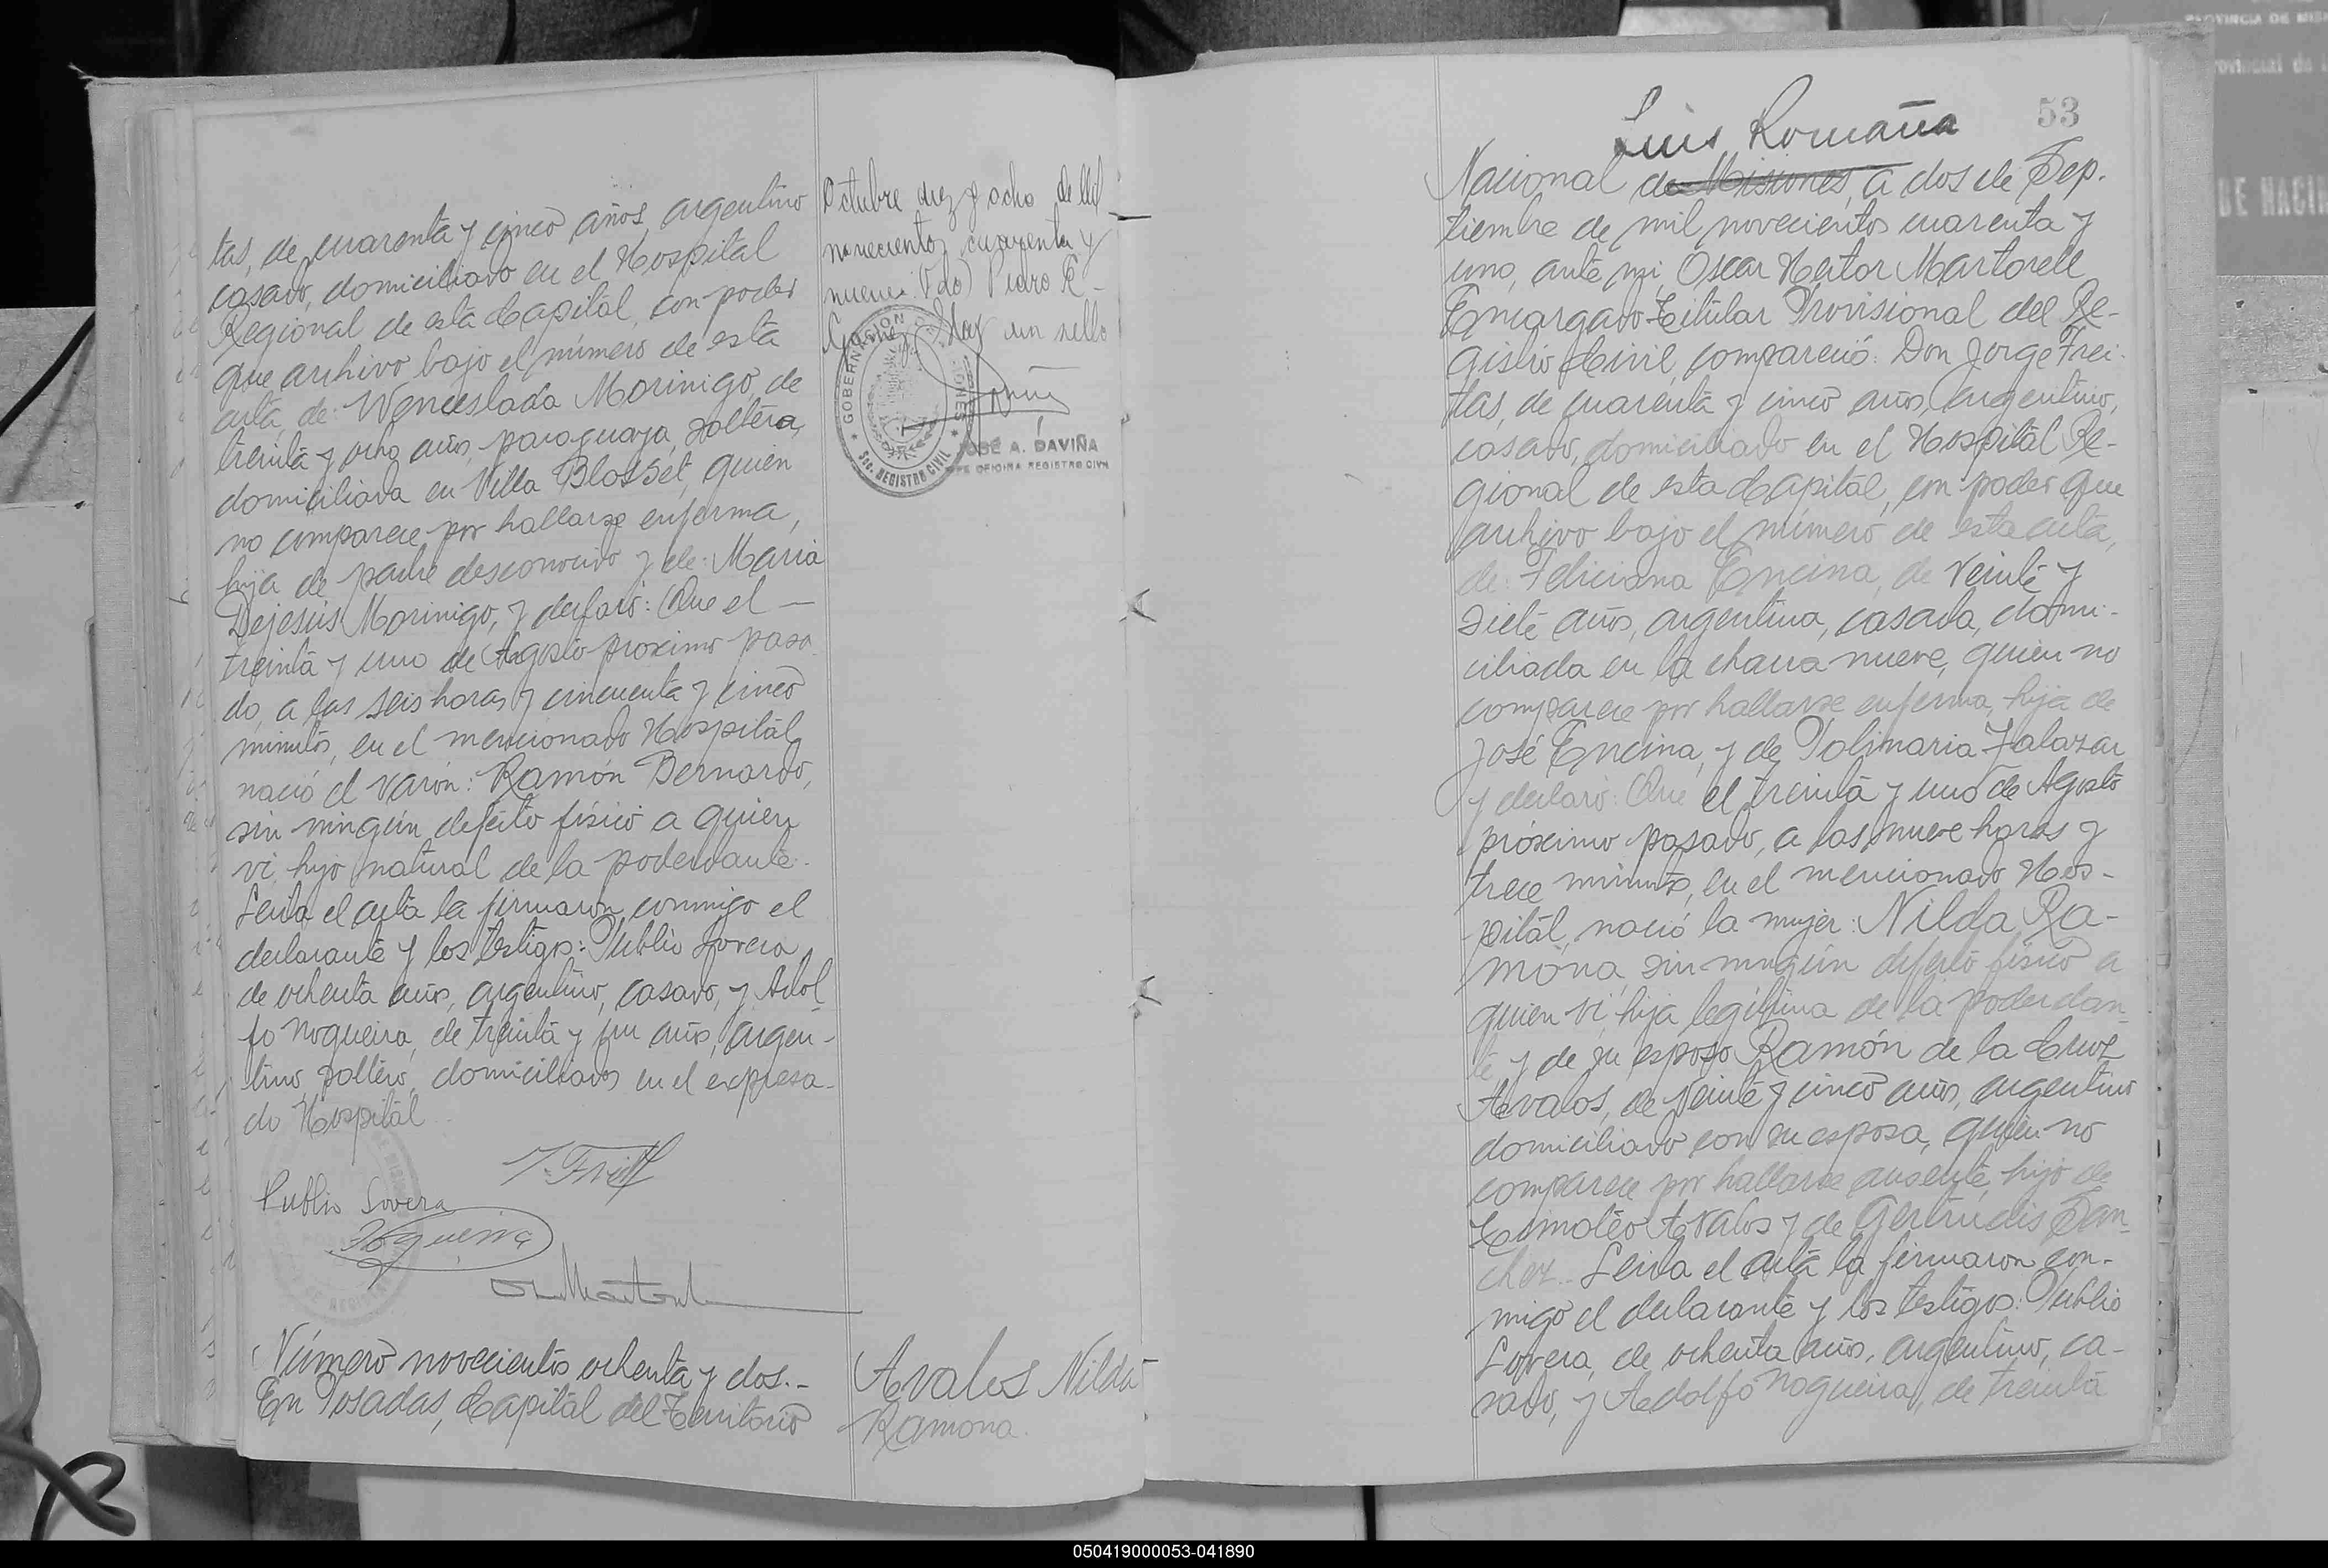 tas, de cuarenta y cinco años, argentino
casado, domiciliado en el Hospital
Regional de esta Capital, con poder
que archivo bajo el número de esta
acta, de: Wenceslada Morinigo, de
treinta y ocho años, paraguaya, soltera,
domiciliada en Villa Blosset, quien
no comparece por hallarse enferma,
hija de padre desconocido y de: Maria
Dejesús Morinigo, y declaró: Que el —
treinta y uno de Agosto proximo pasa-
do, a las seis horas y cincuenta y cinco
minutos, en el mencionado Hospital,
nació el varón: Ramón Bernardo,
sin ningún defecto físico a quien
vi, hijo natural de la poderdante.
Leida el acta la firmaron conmigo el
declarante y los testigos: Publio Lovera
de ochenta años, argentino, casado, y Adol-
fo Nogueira, de treinta y un años, argen-
tino, soltero, domiciliados en el expresa-
do Hospital
Publio Lovera
Nogueira
Número novecientos ochenta y dos.-
En Posadas, Capital del Territorio
Octubre diez y ocho de Mil
novecientos cuarenta y
nueve. (Fdo) Pedro R
Hay un sello
GOBERNACION
SEC. REGISTRO CIVIL
JOSÉ A. DAVIÑA
JEFE OFICINA REGISTRO CIVIL
Avalos Nilda
Ramona.
53
Luis Romaña
Nacional de Misiones, a dos de Sep-
tiembre de mil novecientos cuarenta y
uno, ante mi, Oscar Hector Martorell
Encargado Titular Provisional del Re-
gistro Civil, compareció: Don Jorge Frei-
tas, de cuarenta y cinco años, argentino,
casado, domiciliado en el Hospital Re-
gional de esta Capital, con poder que
archivo bajo el número de esta acta,
de: Feliciana Encina, de veinte y
siete años, argentina, casada, domi-
ciliada en la chacra nueve, quien no
comparece por hallarse enferma, hija de
José Encina, y de Polimaria Zalazar
y declaró: Que el treinta y uno de Agosto
próximo pasado, a las nueve horas y
trece minutos, en el mencionado Hos-
pital, nació la mujer: Nilda Ra-
mona, sin ningún defecto físico a
quien vi, hija legítima de la poderdan-
te y de su esposo Ramón de la Cruz
Avalos, de veinte y cinco años, argentino
domiciliado con su esposa, quien no
comparece por hallarse ausente, hijo de
Timoteo Avalos y de Gertrudis San-
chez. Leida el acta la firmaron con-
migo el declarante y los testigos: Publio
Lovera, de ochenta años, argentino, ca-
sado, y Adolfo Nogueira, de treinta
PROVINCIA DE MIS
DE NACIM
050419000053-041890